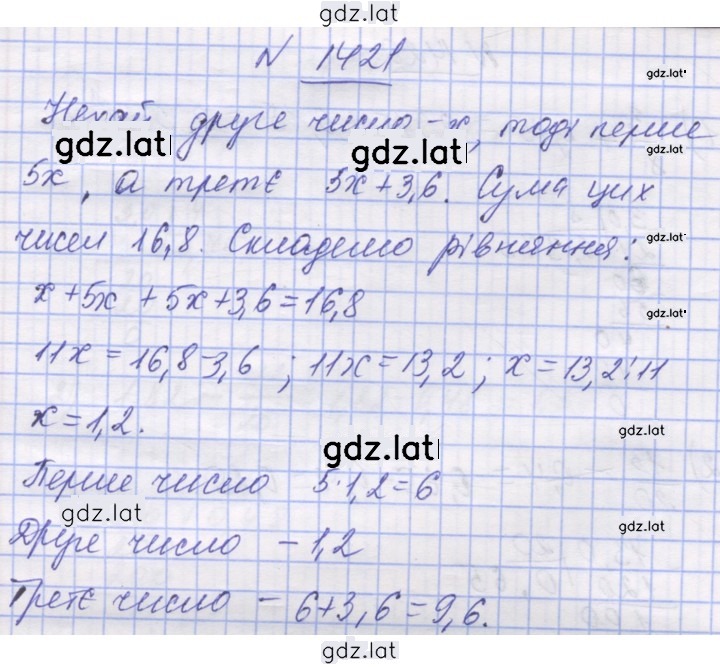 gdz.lat
N 1421
gdz.lat
Нехай друге число - x, тоді перше
gdz.lat
gdz.lat
5x, а третє 5x+3,6. Сума цих
чисел 16,8. Складемо рівняння:
gdz.lat
x+5x+5x+3,6=16,8
gdz.lat
11x=16,8-3,6; 11x=13,2; x=13,2:11
x=1,2.
gdz.lat
gdz.lat
Перше число 5·1,2=6
gdz.lat
Друге число - 1,2
gdz.lat
Третє число - 6+3,6=9,6.
gdz.lat
gdz.lat